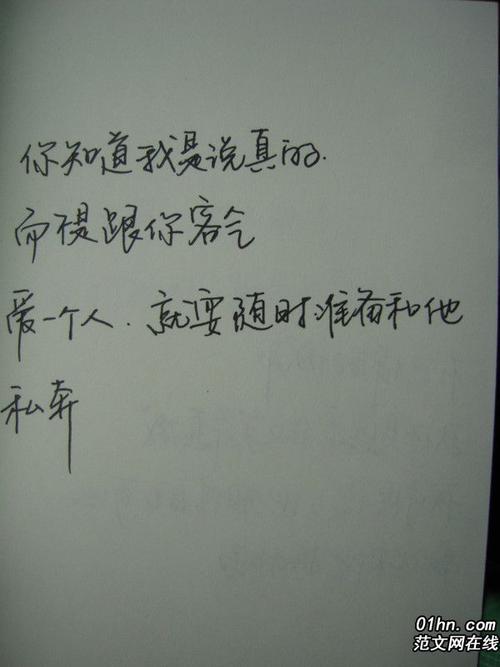 你知道我是说真的.
而不是跟你客气
爱一个人.就要随时准备和他
私奔
01hn.com
范文网在线